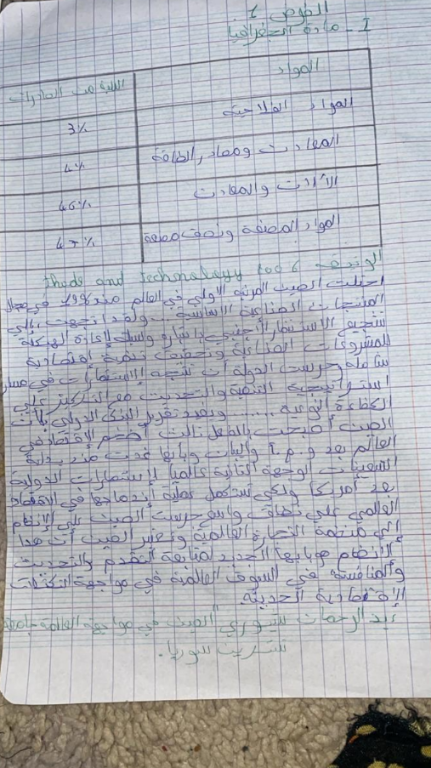 الفرض 1
I - مادة الجغرافيا
المواد النسبة من الصادرات
المواد الفلاحية 3%
المعادن ومصادر الطاقة 4%
الآلات والمعدات 46%
المواد المصنعة ونصف مصنعة 47%
الوثيقة: trade and technology 2006
احتلت الصين المرتبة الأولى في العالم منذ في مجال
المنتجات الصناعية الأساسية ولقد اتجهت إلى
تشجيع الاستثمار الأجنبي باشارو واسل لإعادة الهيكلة
للمشروعات الصناعية وتحقيق تنمية اقتصادية
شاملة وحرست الدولة أن تتجه الاستثمارات في مسار
استراتيجية التنمية والتحديث مع التركيز على
الكفاءة النوعية ..... ويفيد تقرير البنك الدولي بأن
الصين أصبحت بالفعل ثالث أضخم اقتصاد في
العالم بعد و.م.أ واليابان وبأنها غدت منذ بداية
التسعينات الوجهة الثانية عالميا لاستثمارات الدولية
بعد أمريكا ولكي تستكمل عملية اندماجها في الاقتصاد
العالمي على نطاق واسع حرست الصين على الانضمام
إلى منظمة التجارة العالمية وتعتبر الصين أن هذا
الانضمام هو بابها الجديد لمتابعة التقدم والتحديث
والمنافسة في السوق العالمية في مواجهة التكتلات
الاقتصادية الحديثة.
عبد الرحمان تيشوري الصين في مواجهة العالم جامعة
تشرين سوريا.